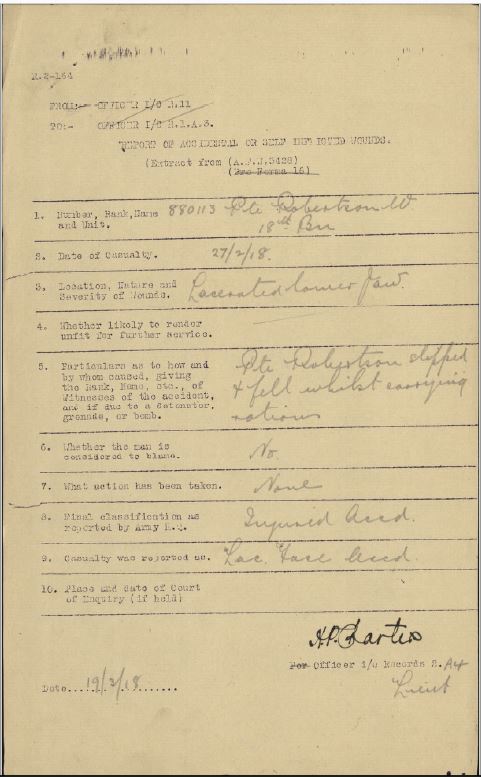 R.2-164
FROM:- OFFICER I/C R.11
TO:- OFFICER I/C R.1.A.3.
REPORT OF ACCIDENTAL OR SELF INFLICTED WOUNDS.
(Extract from (A.F.W.3428)
(Pro Forma 16)
1. Number, Rank, Name 880113 Pte Robertson W.
and Unit. 18th Bn
2. Date of Casualty. 27/2/18.
3. Location, Nature and
Severity of Wounds. Lacerated lower Jaw.
4. Whether likely to render
unfit for further service.
5. Particulars as to how and Pte Robertson slipped
by whom caused, giving & fell whilst carrying
the Rank, Name, etc., of rations
Witnesses of the accident,
and if due to a detonator,
grenade, or bomb.
6. Whether the man is
considered to blame. No.
7. What action has been taken. None
8. Final classification as
reported by Army H.Q. Injured Accd.
9. Casualty was reported as. Lac. Face Accd.
10. Place and date of Court
of Enquiry (if held)
For Officer i/c Records 2.
Lieut
Date....19/3/18.......